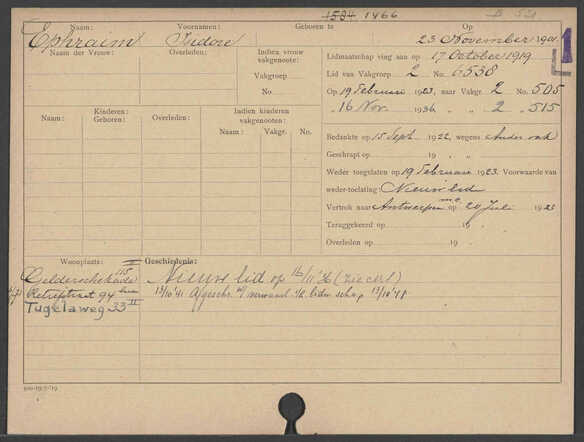 1584 1466
Naam: Voornamen: Geboren te Op
Ephraim Isidore 23 November 1901
Naam der Vrouw: Overleden: Indien vrouw vakgenoote: Lidmaatschap ving aan op 17 October 1919
Vakgroep Lid van Vakgroep 2 No. 6538
No. Op 19 Februari 1923, naar Vakgr. 2 No. 505
" 16 Nov. 1936 " " 2 " 515
Kinderen: Geboren: Overleden: Indien kinderen vakgenooten:
Naam: Naam: Vakgr. No.
Bedankte op 15 Sept. 1922, wegens Ander vak
Geschrapt op 19 , ,
Weder toegelaten op 19 Februari 1923. Voorwaarde van
weder-toelating: Nieuw lid
Vertrok naar Antwerpen op 20 Juli 1923
Teruggekeerd op 19
Overleden op 19
Woonplaats: Geschiedenis:
Gelderschekade 115 II Nieuw lid op 16/11 '36 (zie cert)
Retiefstraat 94 13/10 '41 Afgeschr. lidm schap 13/10 '41
Tugelaweg 33 II